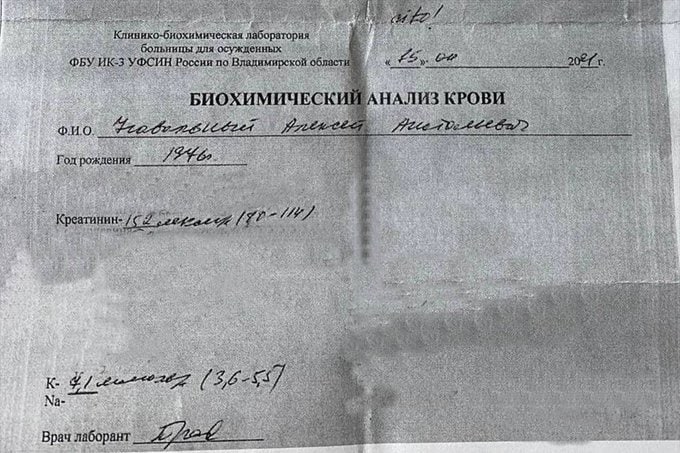 cito!
Клинико-биохимическая лаборатория
больницы для осужденных
ФБУ ИК-3 УФСИН России по Владимирской области
«15» 04 2021г.
БИОХИМИЧЕСКИЙ АНАЛИЗ КРОВИ
Ф.И.О. Навальный Алексей Анатольевич
Год рождения 1976г
Креатинин- 152 мкмоль (70-114)
К- 7,1 ммоль (3,6-5,5)
Na-
Врач лаборант